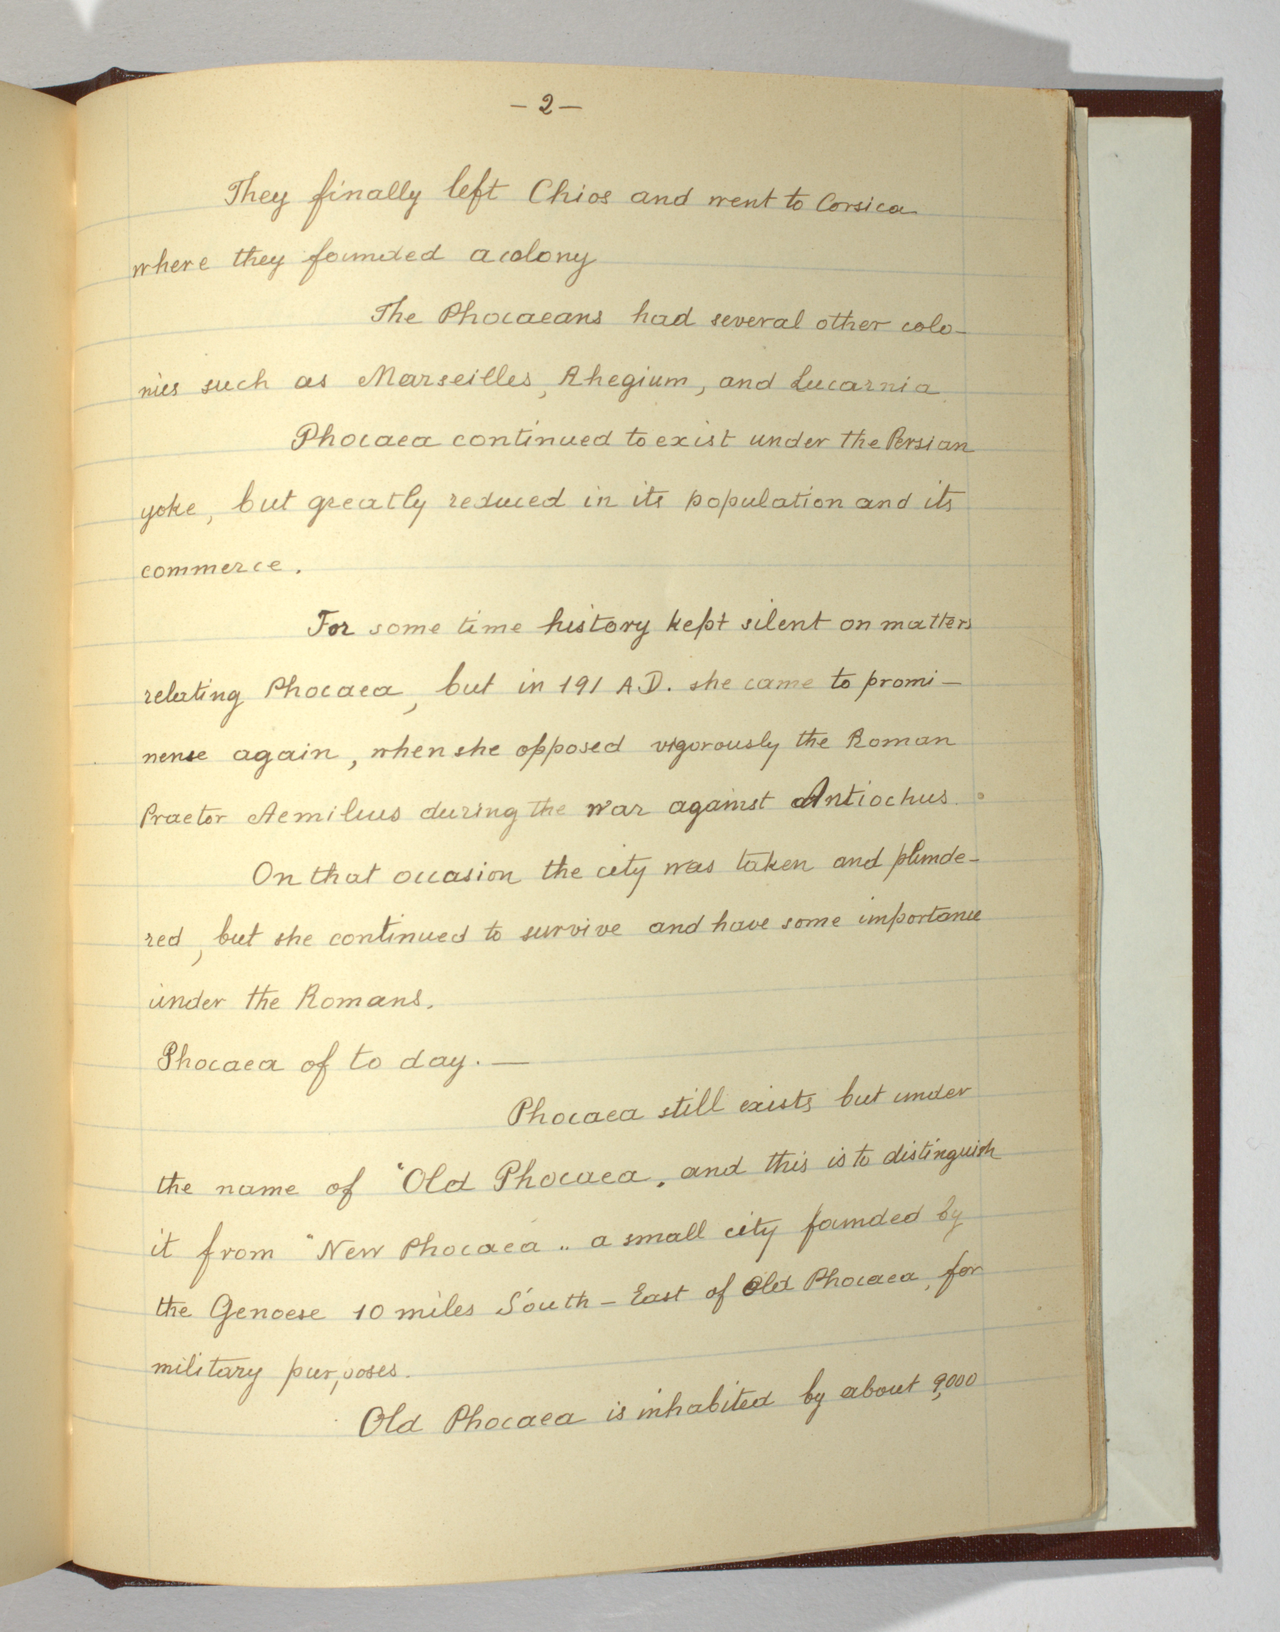 – 2 –
They finally left Chios and went to Corsica
where they founded a colony
The Phocaeans had several other colo-
nies such as Marseilles, Rhegium, and Lucarnia
Phocaea continued to exist under the Persian
yoke, but greatly reduced in its population and its
commerce.
For some time history kept silent on matters
relating Phocaea, but in 191 A.D. she came to promi-
nense again, when she opposed vigorously the Roman
Praetor Aemilius during the war against Antiochus.
On that occasion the city was taken and plunde-
red, but she continued to survive and have some importance
under the Romans.
Phocaea of to day. —
Phocaea still exists but under
the name of "Old Phocaea„ and this is to distinguish
it from "New Phocaea„ a small city founded by
the Genoese 10 miles South-East of Old Phocaea, for
military purposes.
Old Phocaea is inhabited by about 9,000